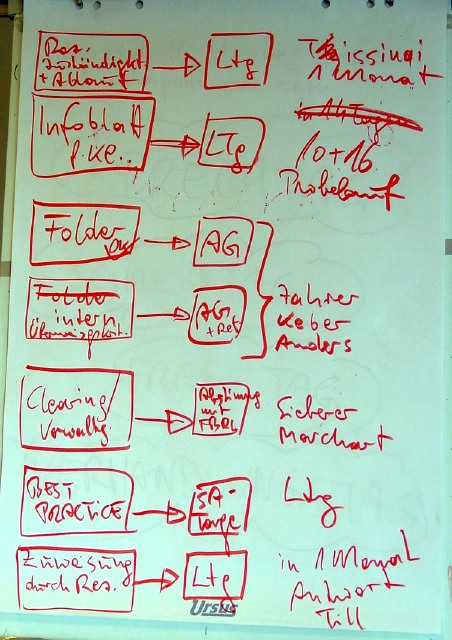 Res.
Zuständigkeit
+ Ablauf
Ltg
1 Monat
Infoblatt
f. KE..
LTg
in 14 Tagen
10+16
Probelauf
Folder
AG
Folder
intern
AG
+ Ref
Zahrer
Keber
Anders
Clearing/
Verwaltg.
Abstimmung
mit
FBRL
Sicherer
Marchart
BEST
PRACTICE
SA-
Tage
Ltg
Zuweisung
durch Res.
Ltg
in 1 Monat
Antwort
Till
Ursus